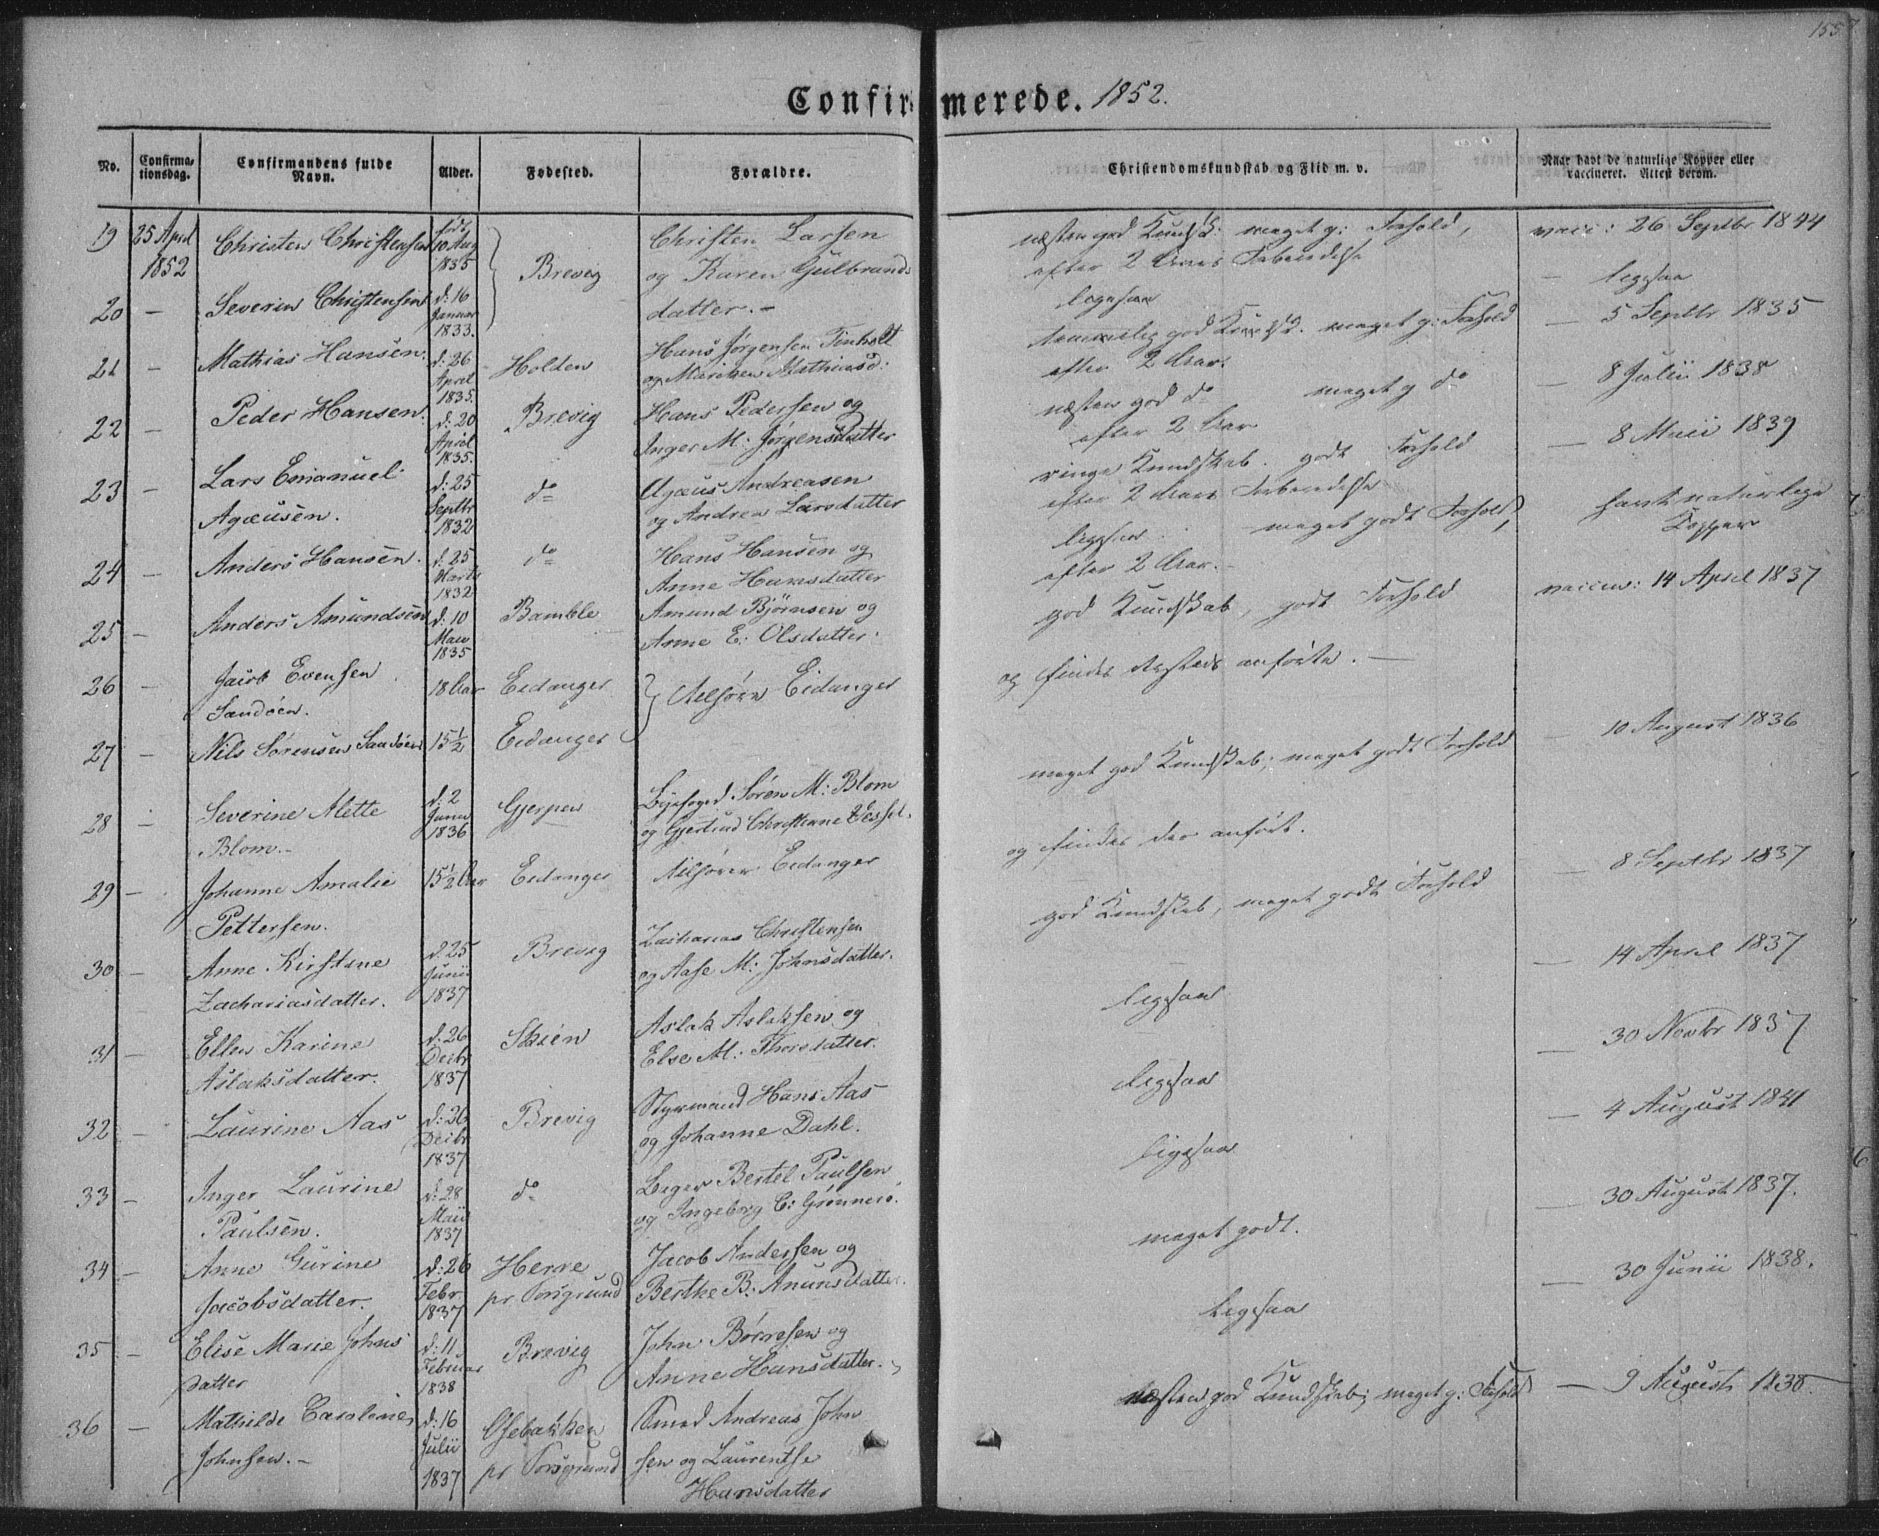 155
Confirmerede. 1852.
No. Confirmationsdag. Confirmandens fulde Navn. Alder. Fødested. Forældre. Christendomskundskab og Flid m. v. Naar havt de naturlige Kopper eller vaccineret. Attest derom.
19 25 April 1852 Christen Christensen født 10 Aug 1835 Brevig Christen Larsen og Karen Gulbrandsdatter.- næsten god Kundsk: meget g: Forhold, efter 2 Aars Forberedelse vacc: 26 Septbr 1844
20 — Severin Christensen d: 16 Januar 1833. ligesaa — ligesaa
21 — Mathias Hansen. d: 26 April 1835. Holden Hans Jørgensen og Maricken Mathiasd: temmelig god Kundsk. meget g: Forhold efter 2 Aar. — 5 Septbr 1835
22 — Peder Hansen. d: 20 April 1835. Brevig Hans Pedersen og Inger M: Jørgensdatter næsten god do meget g do efter 2 Aar — 8 Julii 1838
23 — Lars Emanuel Agæusen. d: 25 Septbr 1832 do Agæus Andreasen og Andrea Larsdatter ringe Kundskab. godt Forhold efter 2 Aars Forberedelse — 8 Maii 1839
24 — Anders Hansen. d. 25 Marts 1832 do Hans Hansen og Anne Hansdatter ligesaa. meget godt Forhold, efter 2 Aar.- havt naturlige Kopper
25 — Anders Amundsen d: 10 Maii 1835 Bamble Amund Bjørnsen og Anne E: Olsdatter. god Kundskab, godt Forhold vaccin: 14 April 1837
26 — Jacob Evensen Sandøen. 18 Aar Eidanger } Tilhører Eidanger og findes dersteds anførte. —
27 — Nils Sørensen Sandøen 15½ Eidanger
28 — Severine Mette Blom.- d. 2 Junii 1836 Gjerpen Byefoged Søren M: Blom og Gjertrud Christiane Tessel. meget god Kundskab, meget godt Forhold — 10 August 1836
29 — Johanne Amalie Pettersen. 15½ Aar Eidanger Tilhører Eidanger og findes der anført.
30 — Anne Kirstine Zachariasdatter. d. 25 Junii 1837 Brevig Zacharias Christensen og Aase M: Johnsdatter. god Kundskab, meget godt Forhold — 8 Septbr 1837
31 — Ellen Karine Aslaksdatter. d: 26 Decbr 1837 Skien Aslak Aslaksen og Else M: Thorsdatter. ligesaa — 14 April 1837
32 — Laurine Aas d: 26 Decbr 1837 Brevig Styrmand Hans Aas og Johanne Dahl. ligesaa — 30 Novbr 1837
33 — Inger Laurine Paulsen. d: 28 Maii 1837 do Bertel Paulsen og Ingeborg C: ligesaa — 4 August 1841
34 — Anne Gurine Jacobsdatter. d: 26 Febr 1837 Herre pr Porsgrund Jacob Andersen og Berthe B: Anunsdatter. meget godt. — 30 August 1837.
35 — Elise Marie Johnsdatter d: 11 Februar 1838 Brevig John Børresen og Anne Hansdatter. ligesaa — 30 Junii 1838.
36 — Mathilde Caroline Johnsen.- d: 16 Julii 1837 Osebakken pr Porsgrund Smed Andreas Johnsen og Laurentse Hansdatter næsten god Kundskab; meget g: Forhold — 9 August 1838